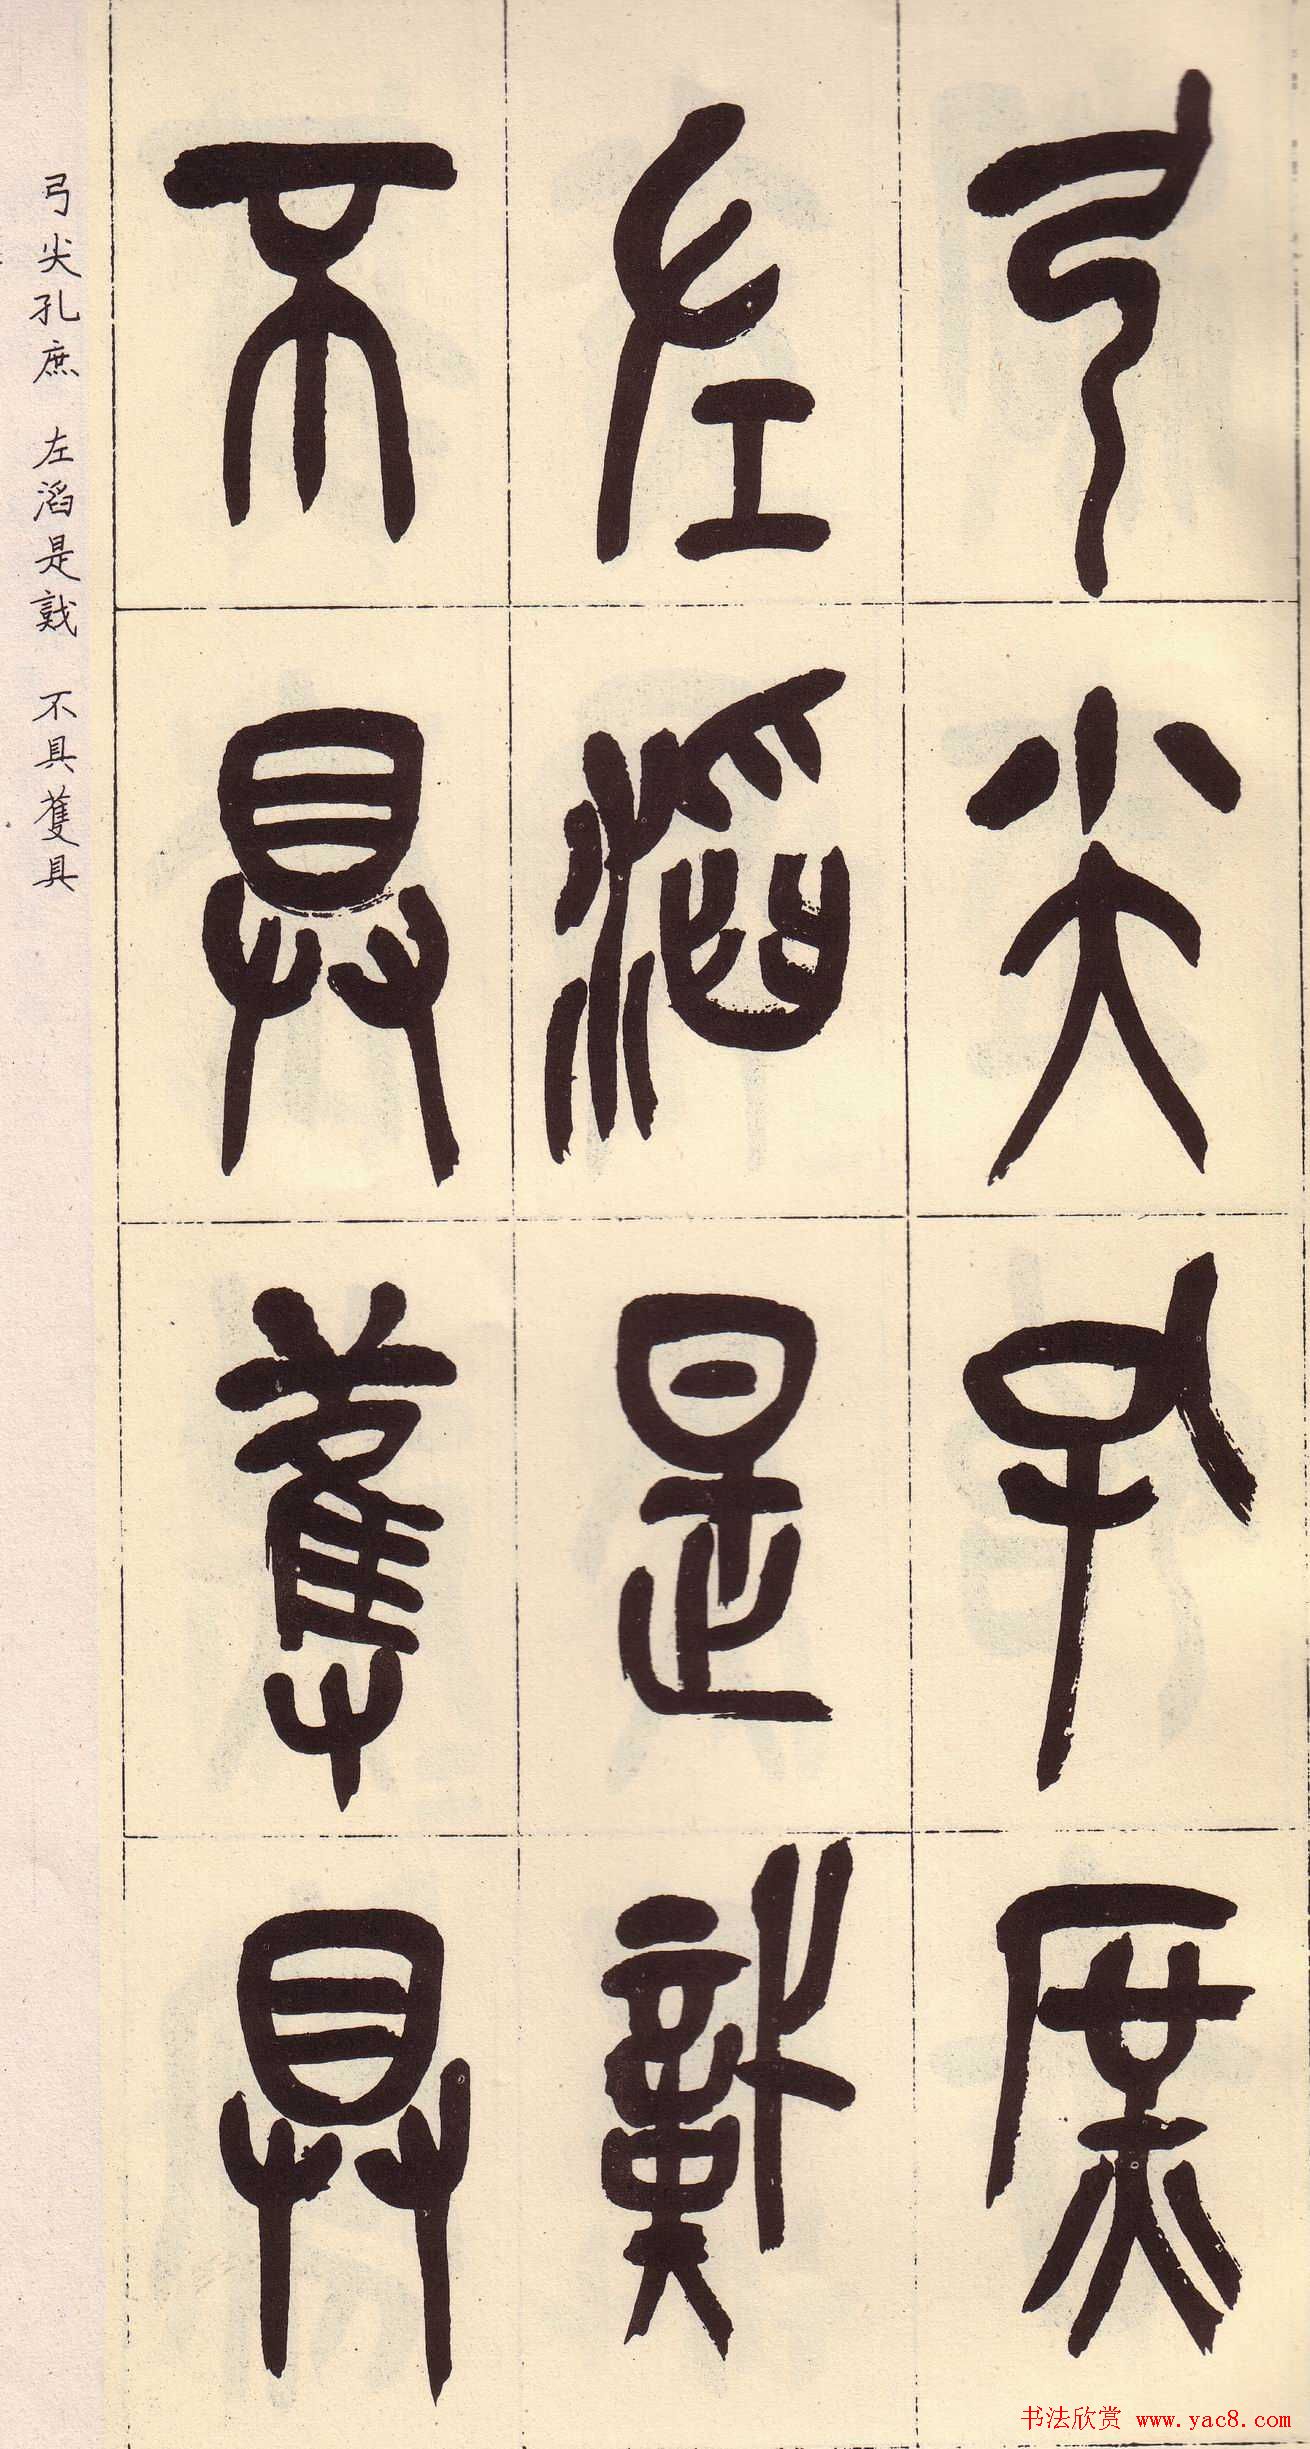 弓尖孔庶
左滔是戠
不具蒦具
弓尖孔庶　左滔是戠　不具蒦具
书法欣赏 www.yac8.com